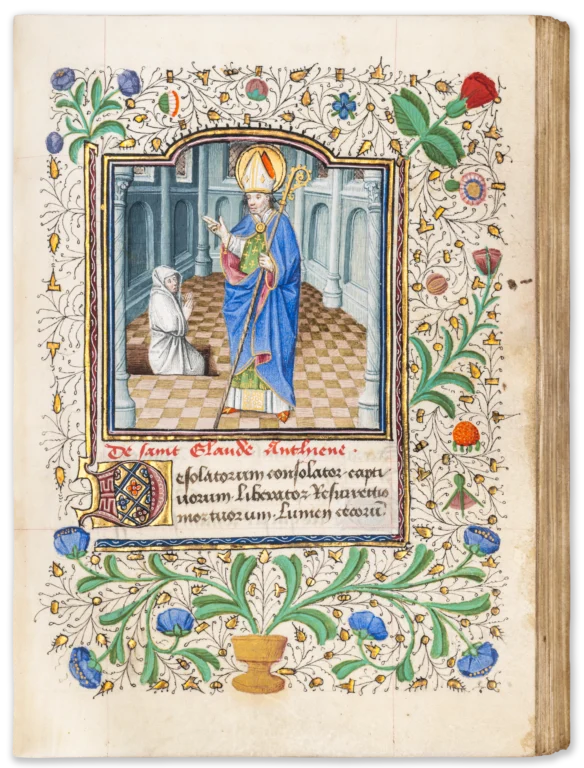 De saint Glaude Anthiene.
Desolatorum consolator. capti
uorum. liberator. resurrectio
mortuorum. lumen cecorū